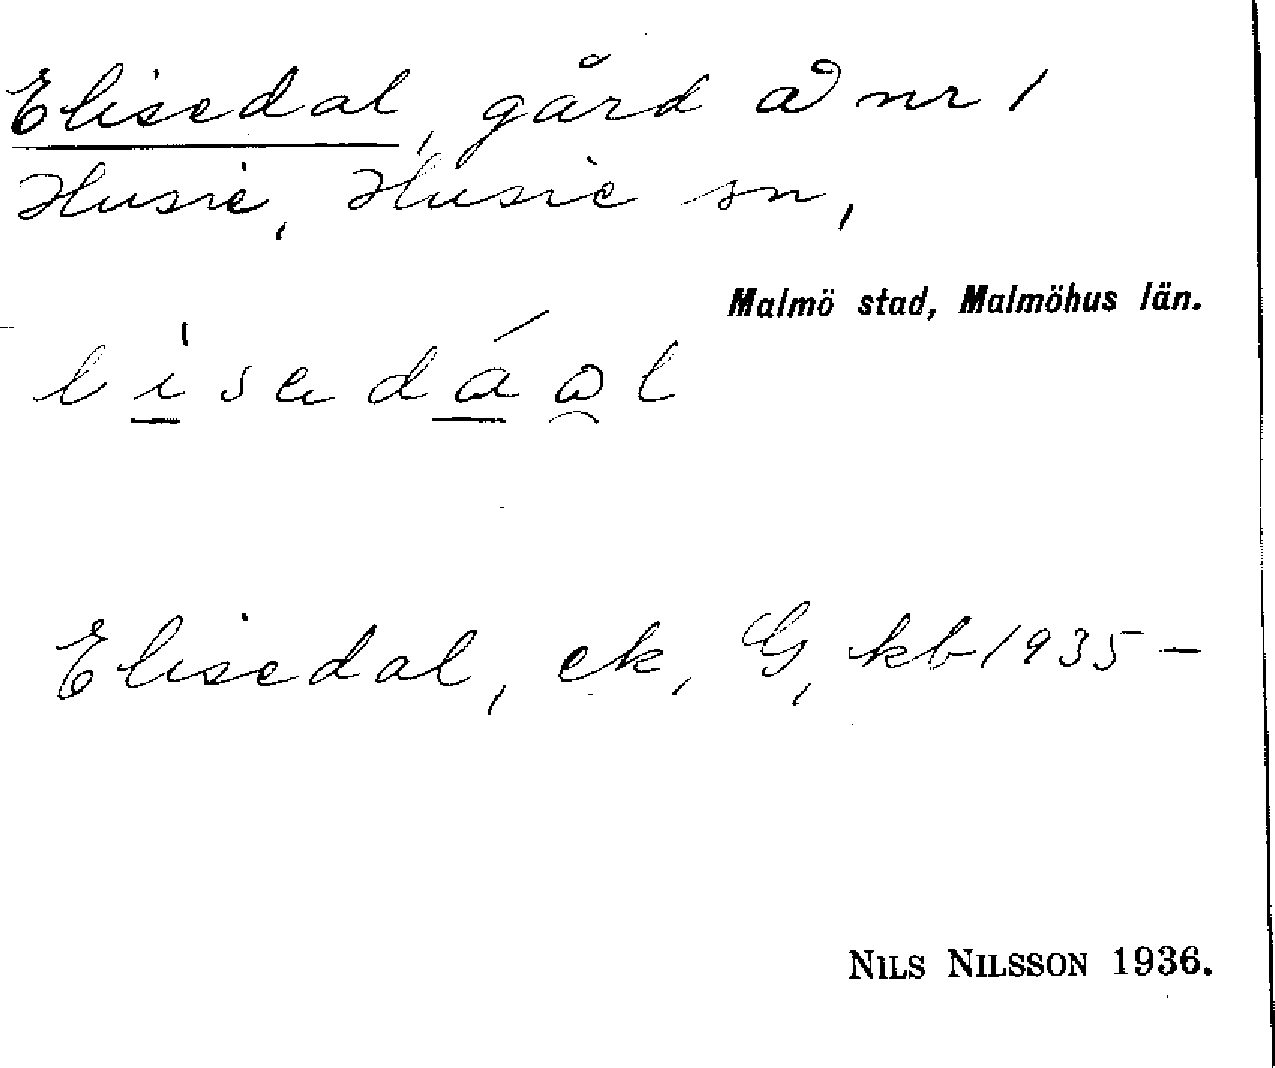 Elisedal, gård å nr 1
Husie, Husie sn,
Malmö stad, Malmöhus län.
Elisedal, ek, G, kb 1935–
NILS NILSSON 1936.